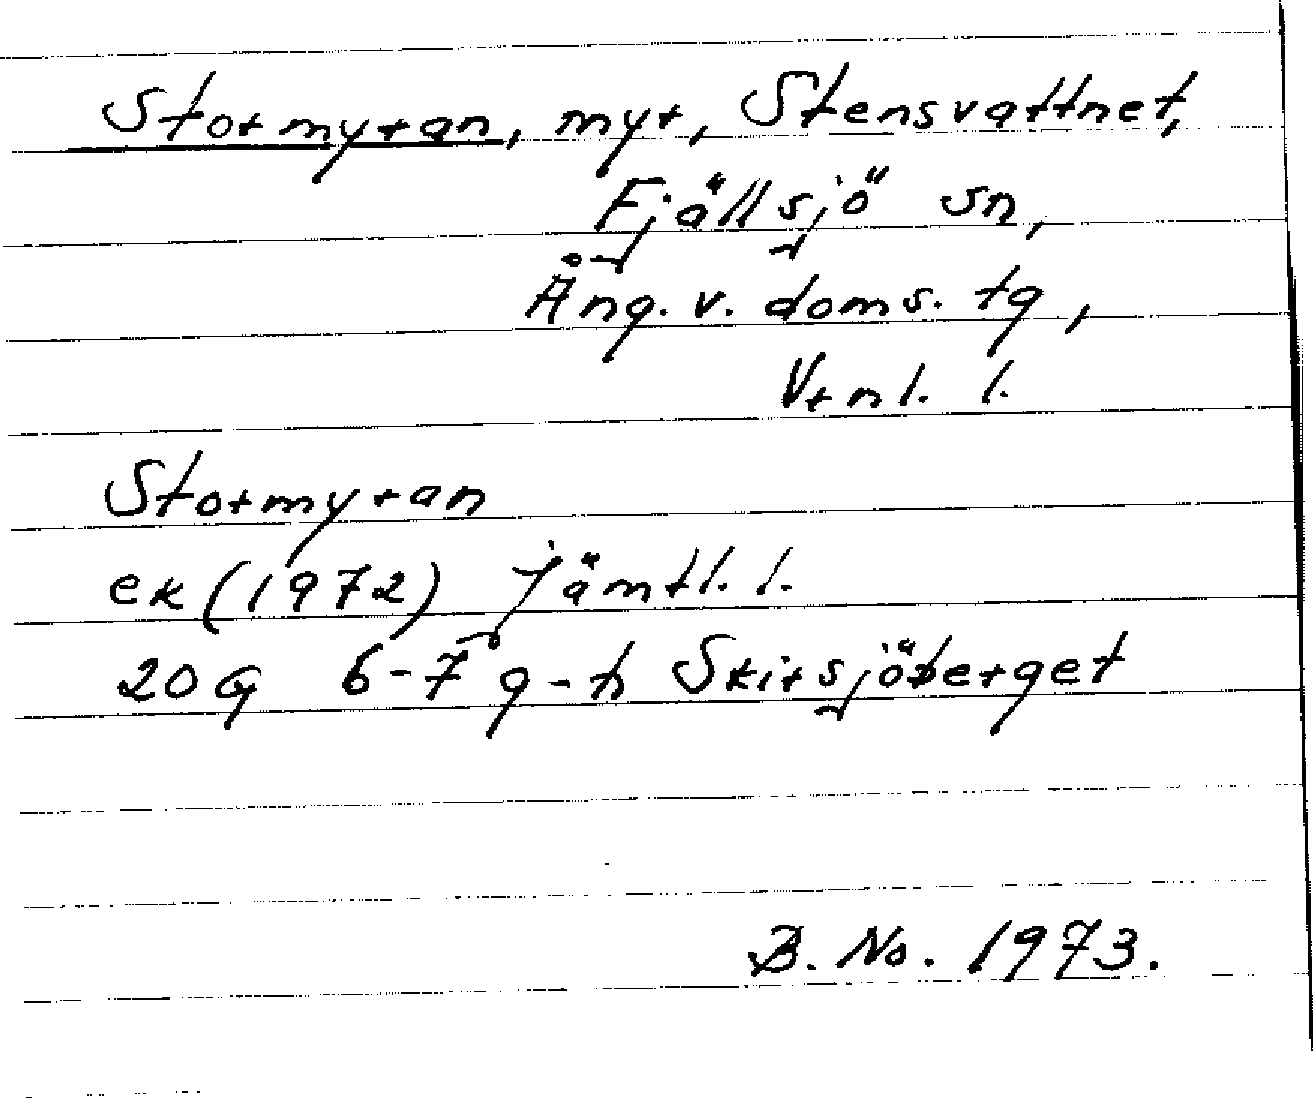 Stormyran, myr, Stensvattnet,
Fjällsjö sn,
Ång. v. doms. tg,
Vrnl. l.
Stormyran
ek (1972) Jämtl. l.
20G 6-7 g-h Skirsjöberget
B. No. 1973.